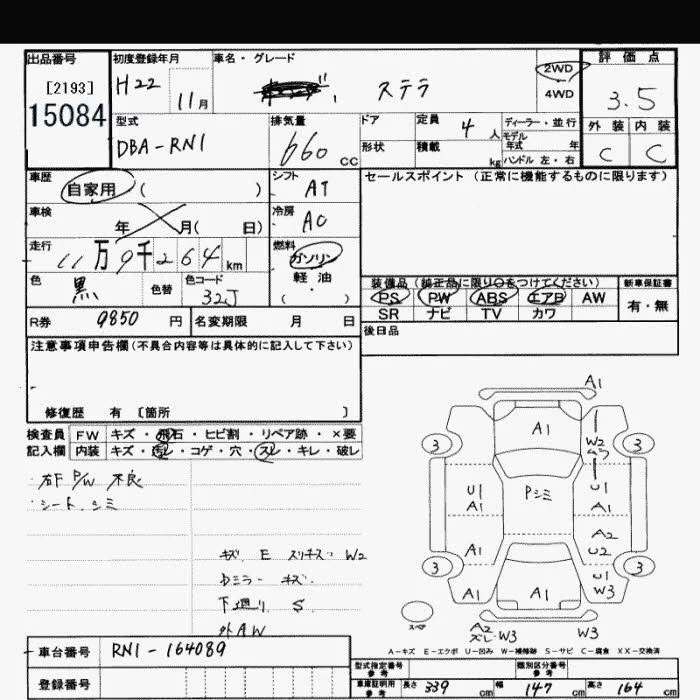 出品番号 初度登録年月 車名・グレード 2WD 評価点
[2193] H22 11月 ステラ 4WD 3.5
15084 型式 排気量 ドア 定員 4人 ディーラー・並行 外装 内装
DBA-RN1 660cc 形状 積載 kg モデル年式 年 C C
ハンドル 左・右
車歴 自家用 ( ) シフト AT セールスポイント (正常に機能するものに限ります)
車検 年 月( 日) 冷房 AC
走行 11万9千264km 燃料 ガソリン
色 黒 色替 色コード 32J 軽油 ( ) 装備品 (純正品に限り○をつけてください) 新車保証書
PS PW ABS エアB AW 有・無
R券 9850円 名変期限 月 日 SR ナビ TV カワ
注意事項申告欄(不具合内容等は具体的に記入して下さい) 後日品
修復歴 有 〔箇所 〕
検査員 FW キズ・飛石・ヒビ割・リペア跡・×要
記入欄 内装 キズ・汚レ・コゲ・穴・スレ・キレ・破レ
右F P/W 不良
シート、シミ
キズ、E スリキズ W2
Dミラー キズ.
下廻り S
外AW
A1
A1 W2 ムラ
3 3
U1 A1 Pシミ U1 A1
A1 A2 U2
3 3
A1 A1 U1 W3
スペア A2 ズレ W3 W3
A-キズ E-エクボ U-凹み W-補修跡 S-サビ C-腐食 XX-交換済
車台番号 RN1-164089
登録番号
型式指定番号 参考 類別区分番号 参考
車庫証明用 参考 長さ 339cm 幅 147cm 高さ 164cm